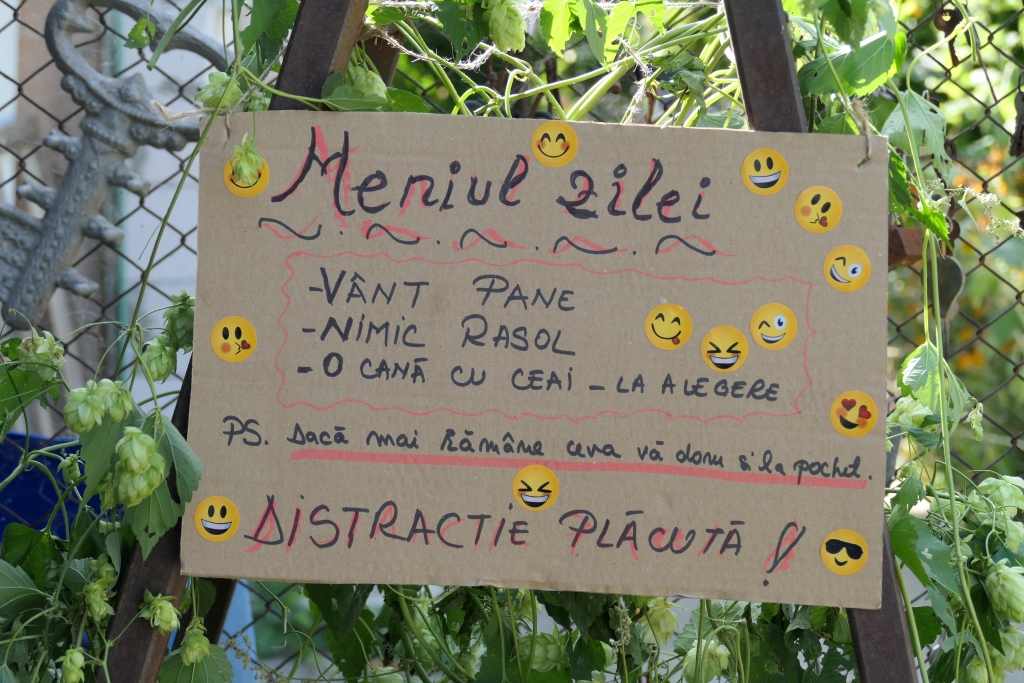 Meniul zilei
-VÂNT PANE
-NIMIC RASOL
-O CANĂ CU CEAI - LA ALEGERE
PS. Dacă mai Rămâne ceva vă dam și la pachet.
DISTRACTIE PLĂCUTĂ !